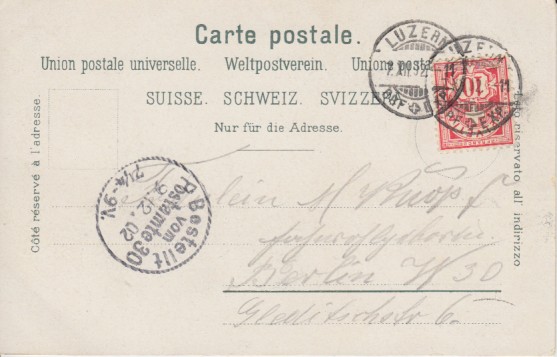 Carte postale.
Union postale universelle. Weltpostverein. Unione posta
SUISSE. SCHWEIZ. SVIZZE
Nur für die Adresse.
Côté réservé à l'adresse.
riservato all' indirizzo
LUZERN
EXP.
10
Bestellt
vom
Postamte 30
12. 02
7¼-9V.
Fräulein M Knopf
Berlin W 30
Gleditschstr 6.